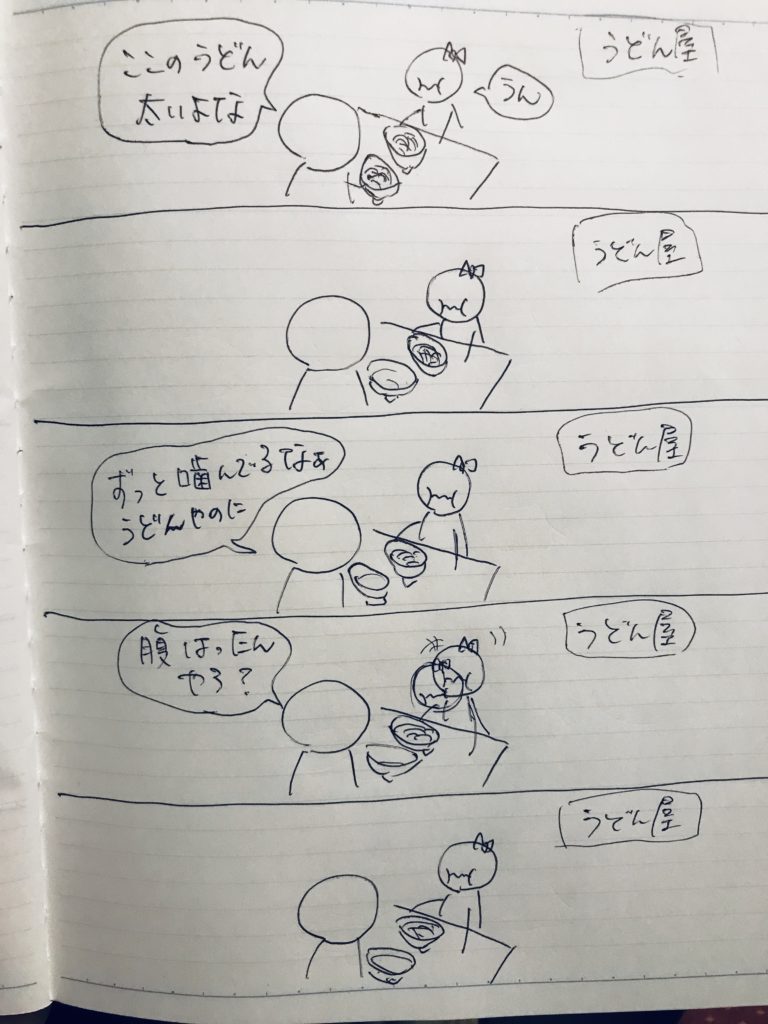 うどん屋
ここのうどん
太いよな
うん
うどん屋
うどん屋
ずっと噛んでるなぁ
うどんやのに
うどん屋
腹はったん
やろ？
うどん屋